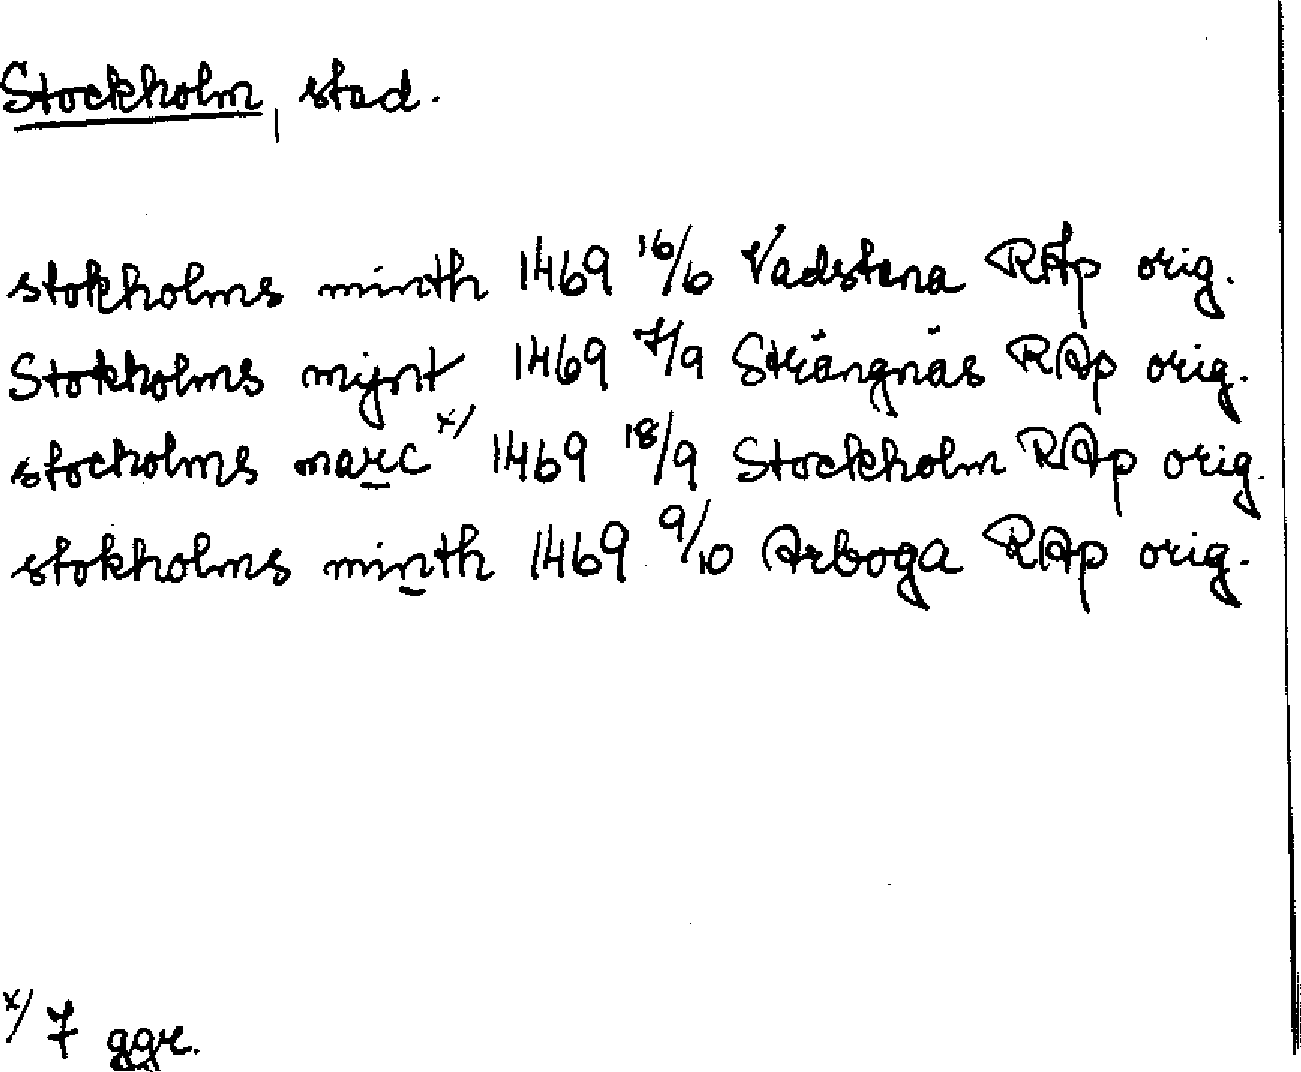 Stockholm, stad.
stokholms minth 1469 16/6 Vadstena RAp orig.
Stokholms mijnt 1469 7/9 Strängnäs RAp orig.
stocholms marc x/ 1469 18/9 Stockholm RAp orig.
stokholms minth 1469 9/10 Arboga RAp orig.
x/ 7 ggr.